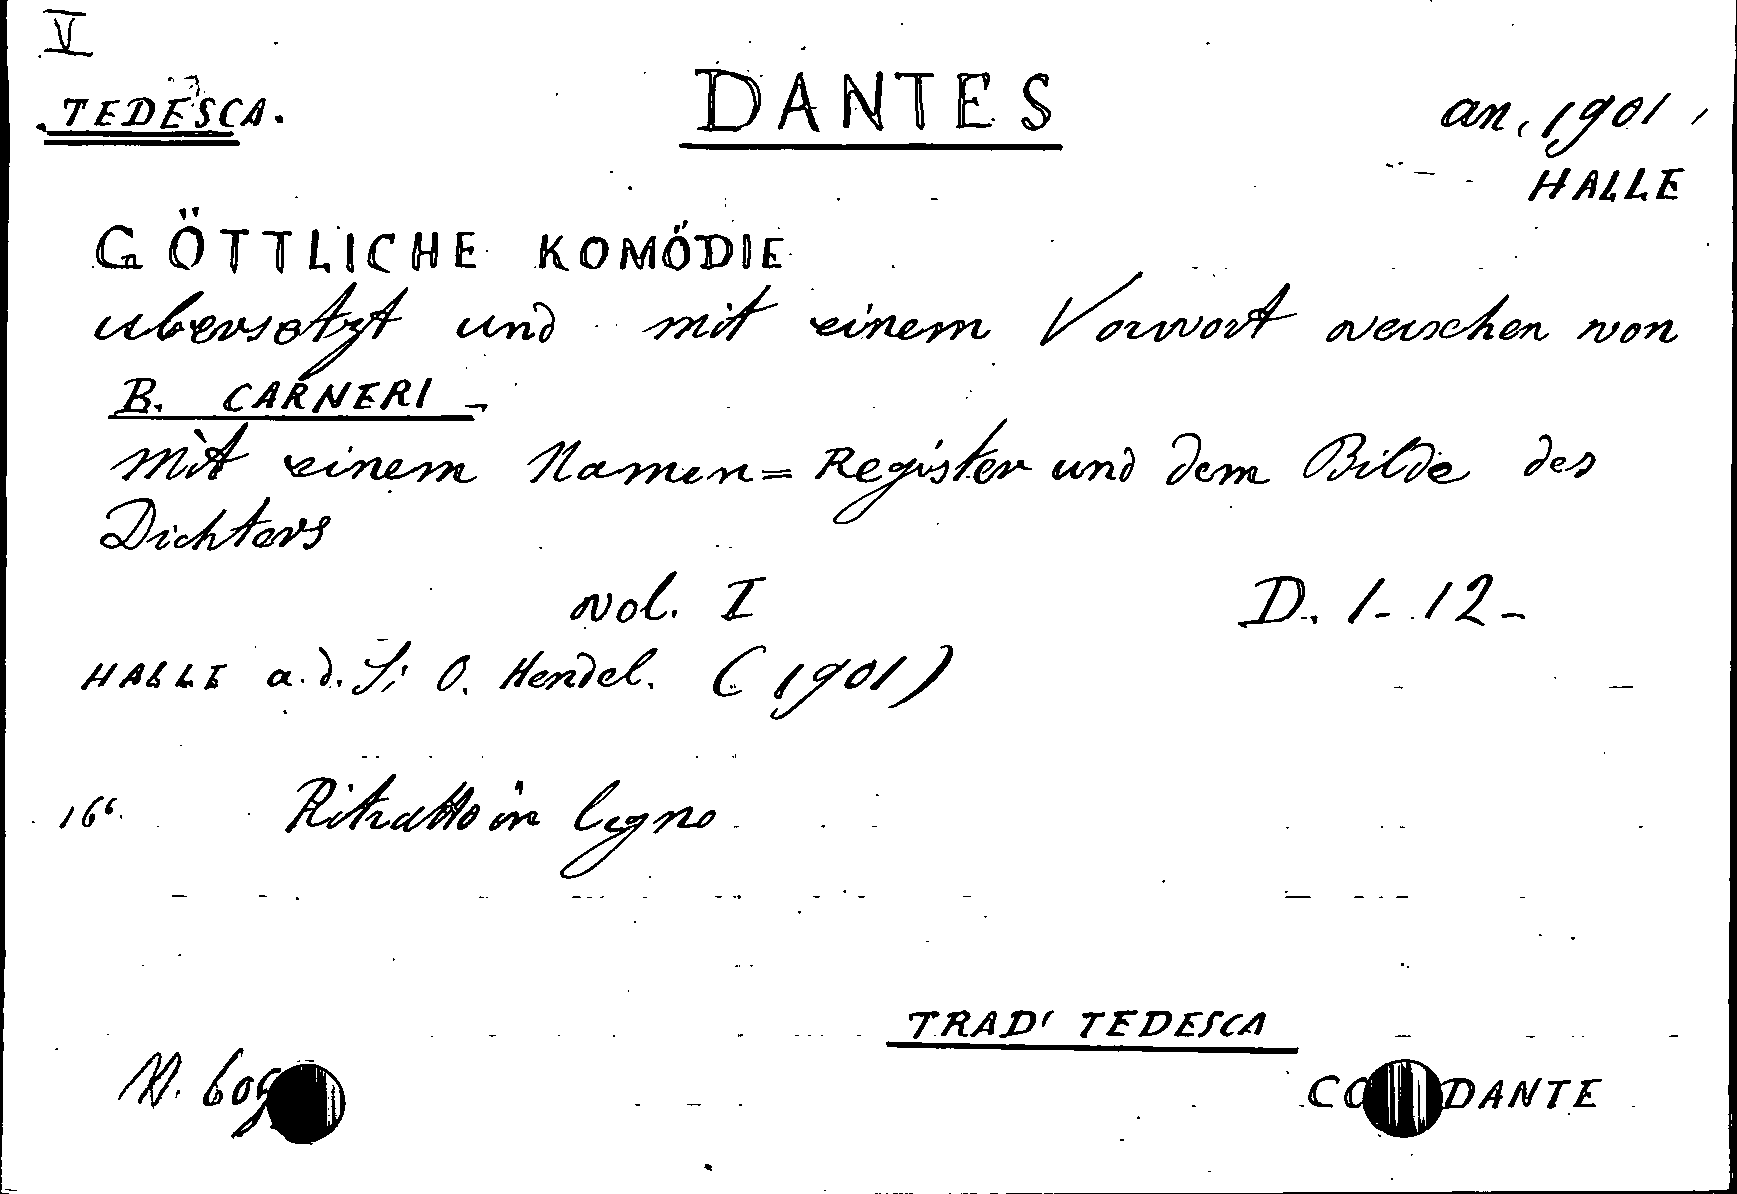 V
TEDESCA.
DANTES
an. 1901
HALLE
GÖTTLICHE KOMÖDIE
ubersetzt und mit einem Vorwort versehen von
B. CARNERI -
mit einem Namen= Register und dem Bilde des
Dichters
vol. I D. 1- 12-
HALLE a. d. S; O. Hendel. (1901)
16⁶ Ritratto in legno
TRAD' TEDESCA
N.
DANTE